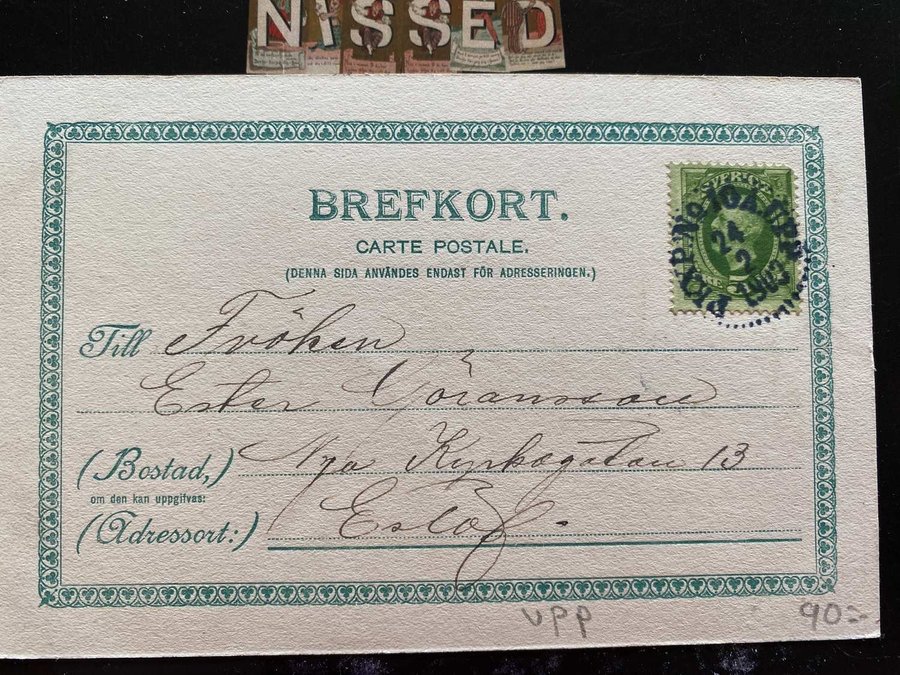 NISSED
BREFKORT.
CARTE POSTALE.
(DENNA SIDA ANVÄNDES ENDAST FÖR ADRESSERINGEN.)
SVERIGE
PKXP. No 10A. UPP
24
2
1903
Till Fröken
Ester Göransson
(Bostad,) Nya Kyrkogatan 13
om den kan uppgifvas:
(Adressort:) Eslöf.
upp
90:-